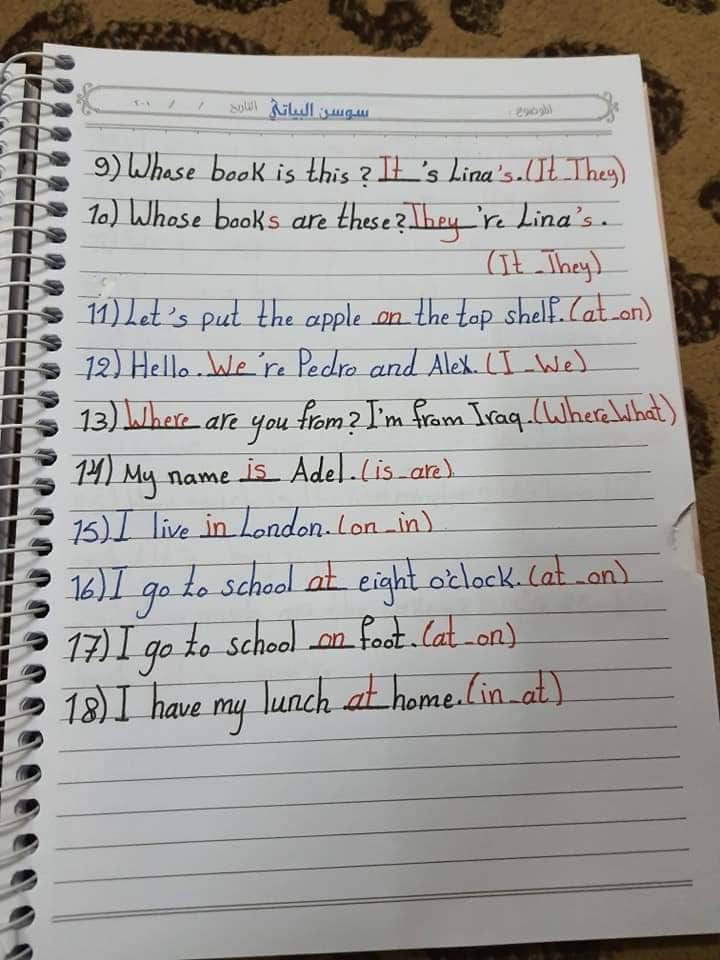 الموضوع: سوسن البياتي التاريخ / / ٢٠١
9) Whose book is this? It 's Lina's. (It_They)
10) Whose books are these? They 're Lina's.
(It_They)
11) Let's put the apple on the top shelf. (at_on)
12) Hello. We 're Pedro and Alex. (I_We)
13) Where are you from? I'm from Iraq. (Where_What)
14) My name is Adel. (is_are)
15) I live in London. (on_in)
16) I go to school at eight o'clock. (at_on)
17) I go to school on foot. (at_on)
18) I have my lunch at home. (in_at)